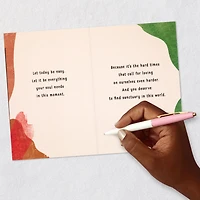 Let today be easy.
Let it be everything
your soul needs
in this moment.
Because it's the hard times
that call for loving
on ourselves even harder.
And you deserve
to find sanctuary in this world.